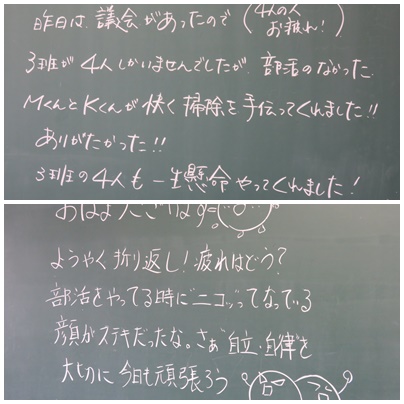 昨日は、議会があったので(4人の人お疲れ!)
3班が4人しかいませんでしたが、部活のなかった
MくんとKくんが快く掃除を手伝ってくれました!!
ありがたかった!!
3班の4人も一生懸命やってくれました!
おはようございます
ようやく折り返し!疲れはどう?
部活をやってる時にニコッってなっている
顔がステキだったな。さぁ自立・自律を
大切に今日も頑張ろう